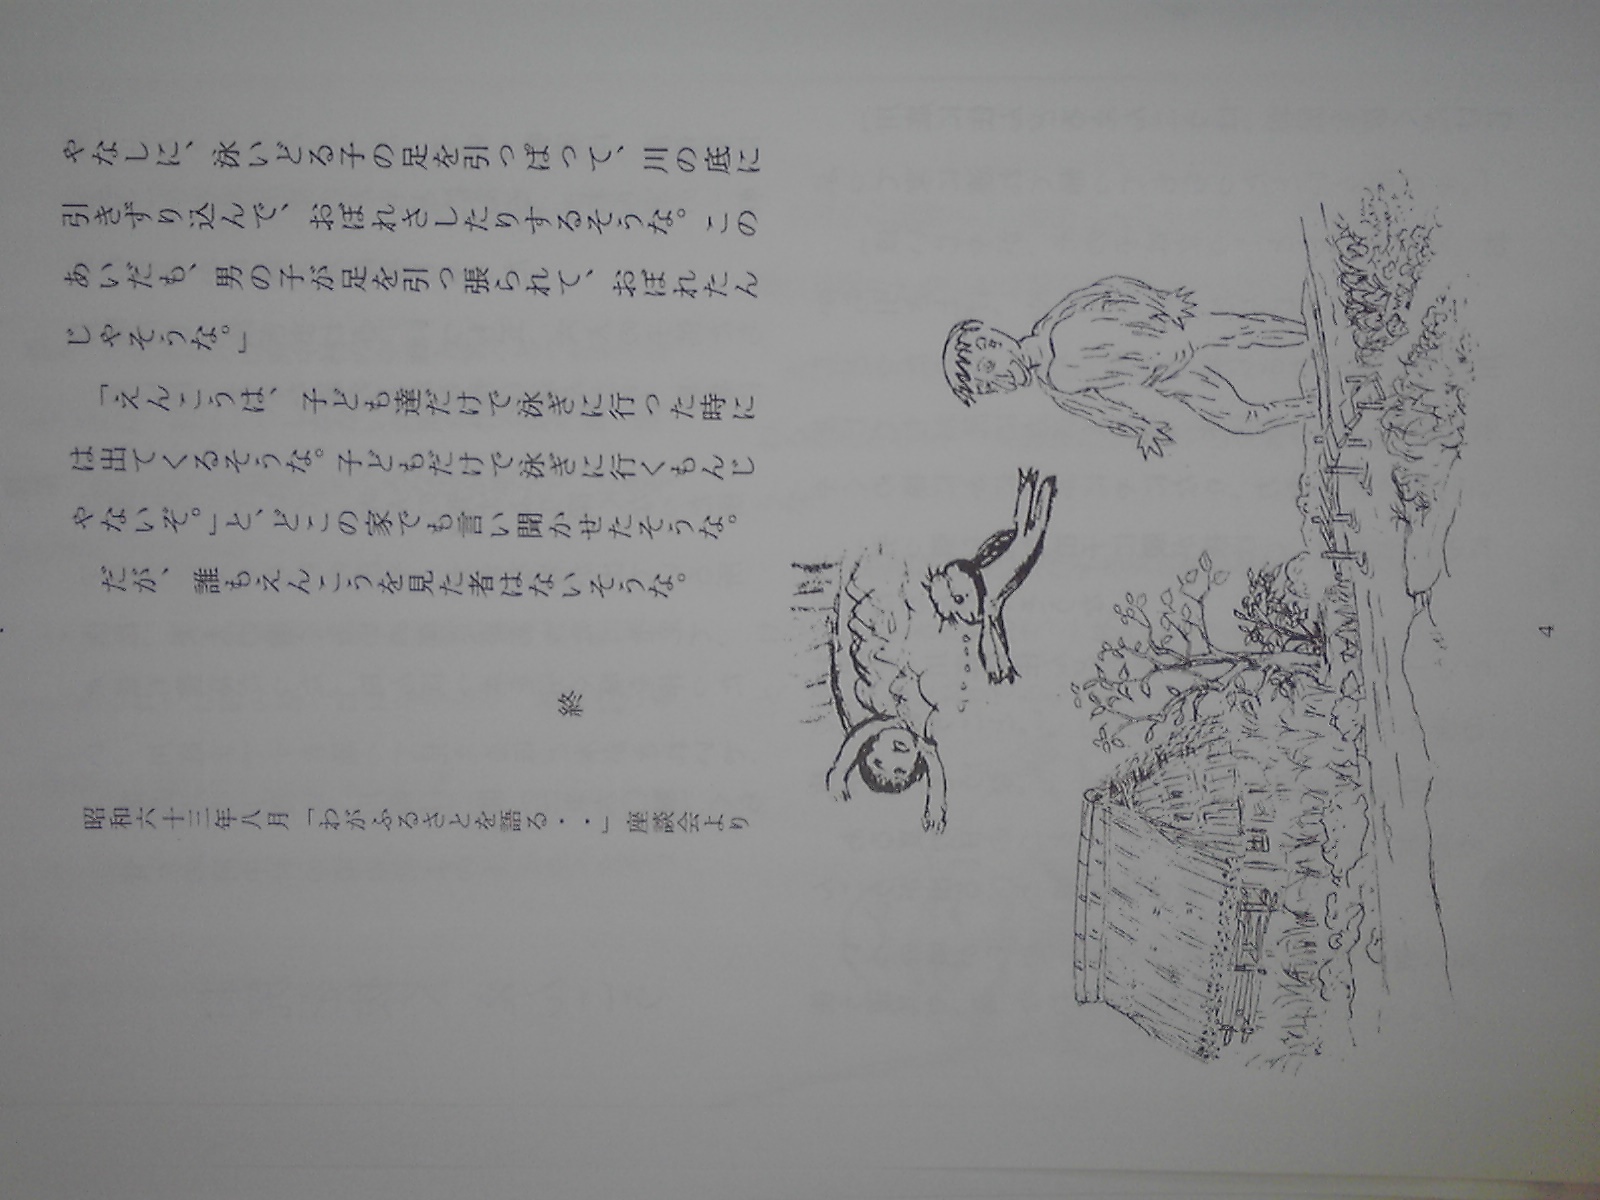 やなしに、泳いどる子の足を引っぱって、川の底に
引きずり込んで、おぼれさしたりするそうな。この
あいだも、男の子が足を引っ張られて、おぼれたん
じやそうな。」
「えんこうは、子ども達だけで泳ぎに行った時に
は出てくるそうな。子どもだけで泳ぎに行くもんじ
やないぞ。」と、どこの家でも言い聞かせたそうな。
だが、誰もえんこうを見た者はないそうな。
終
昭和六十三年八月「わがふるさとを語る・・」座談会より
4